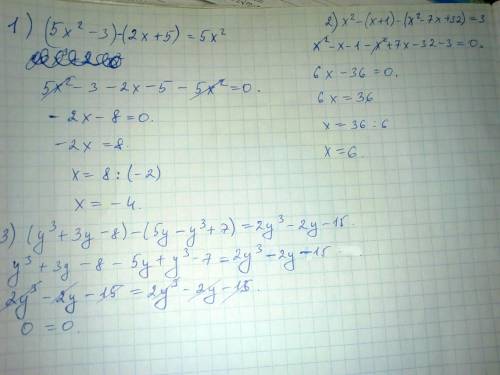 1) (5x² - 3) - (2x + 5) = 5x²
5x² - 3 - 2x - 5 - 5x² = 0.
- 2x - 8 = 0.
- 2x = 8.
x = 8 : (-2)
x = - 4.
2) x² - (x + 1) - (x² - 7x + 32) = 3
x² - x - 1 - x² + 7x - 32 - 3 = 0.
6x - 36 = 0.
6x = 36
x = 36 : 6
x = 6.
3) (y³ + 3y - 8) - (5y - y³ + 7) = 2y³ - 2y - 15.
y³ + 3y - 8 - 5y + y³ - 7 = 2y³ - 2y - 15
2y³ - 2y - 15 = 2y³ - 2y - 15.
0 = 0.